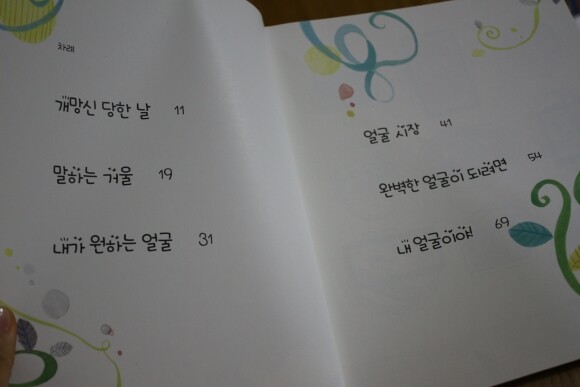 차례
개망신 당한 날 11
말하는 거울 19
내가 원하는 얼굴 31
얼굴 시장 41
완벽한 얼굴이 되려면 54
내 얼굴이야! 69